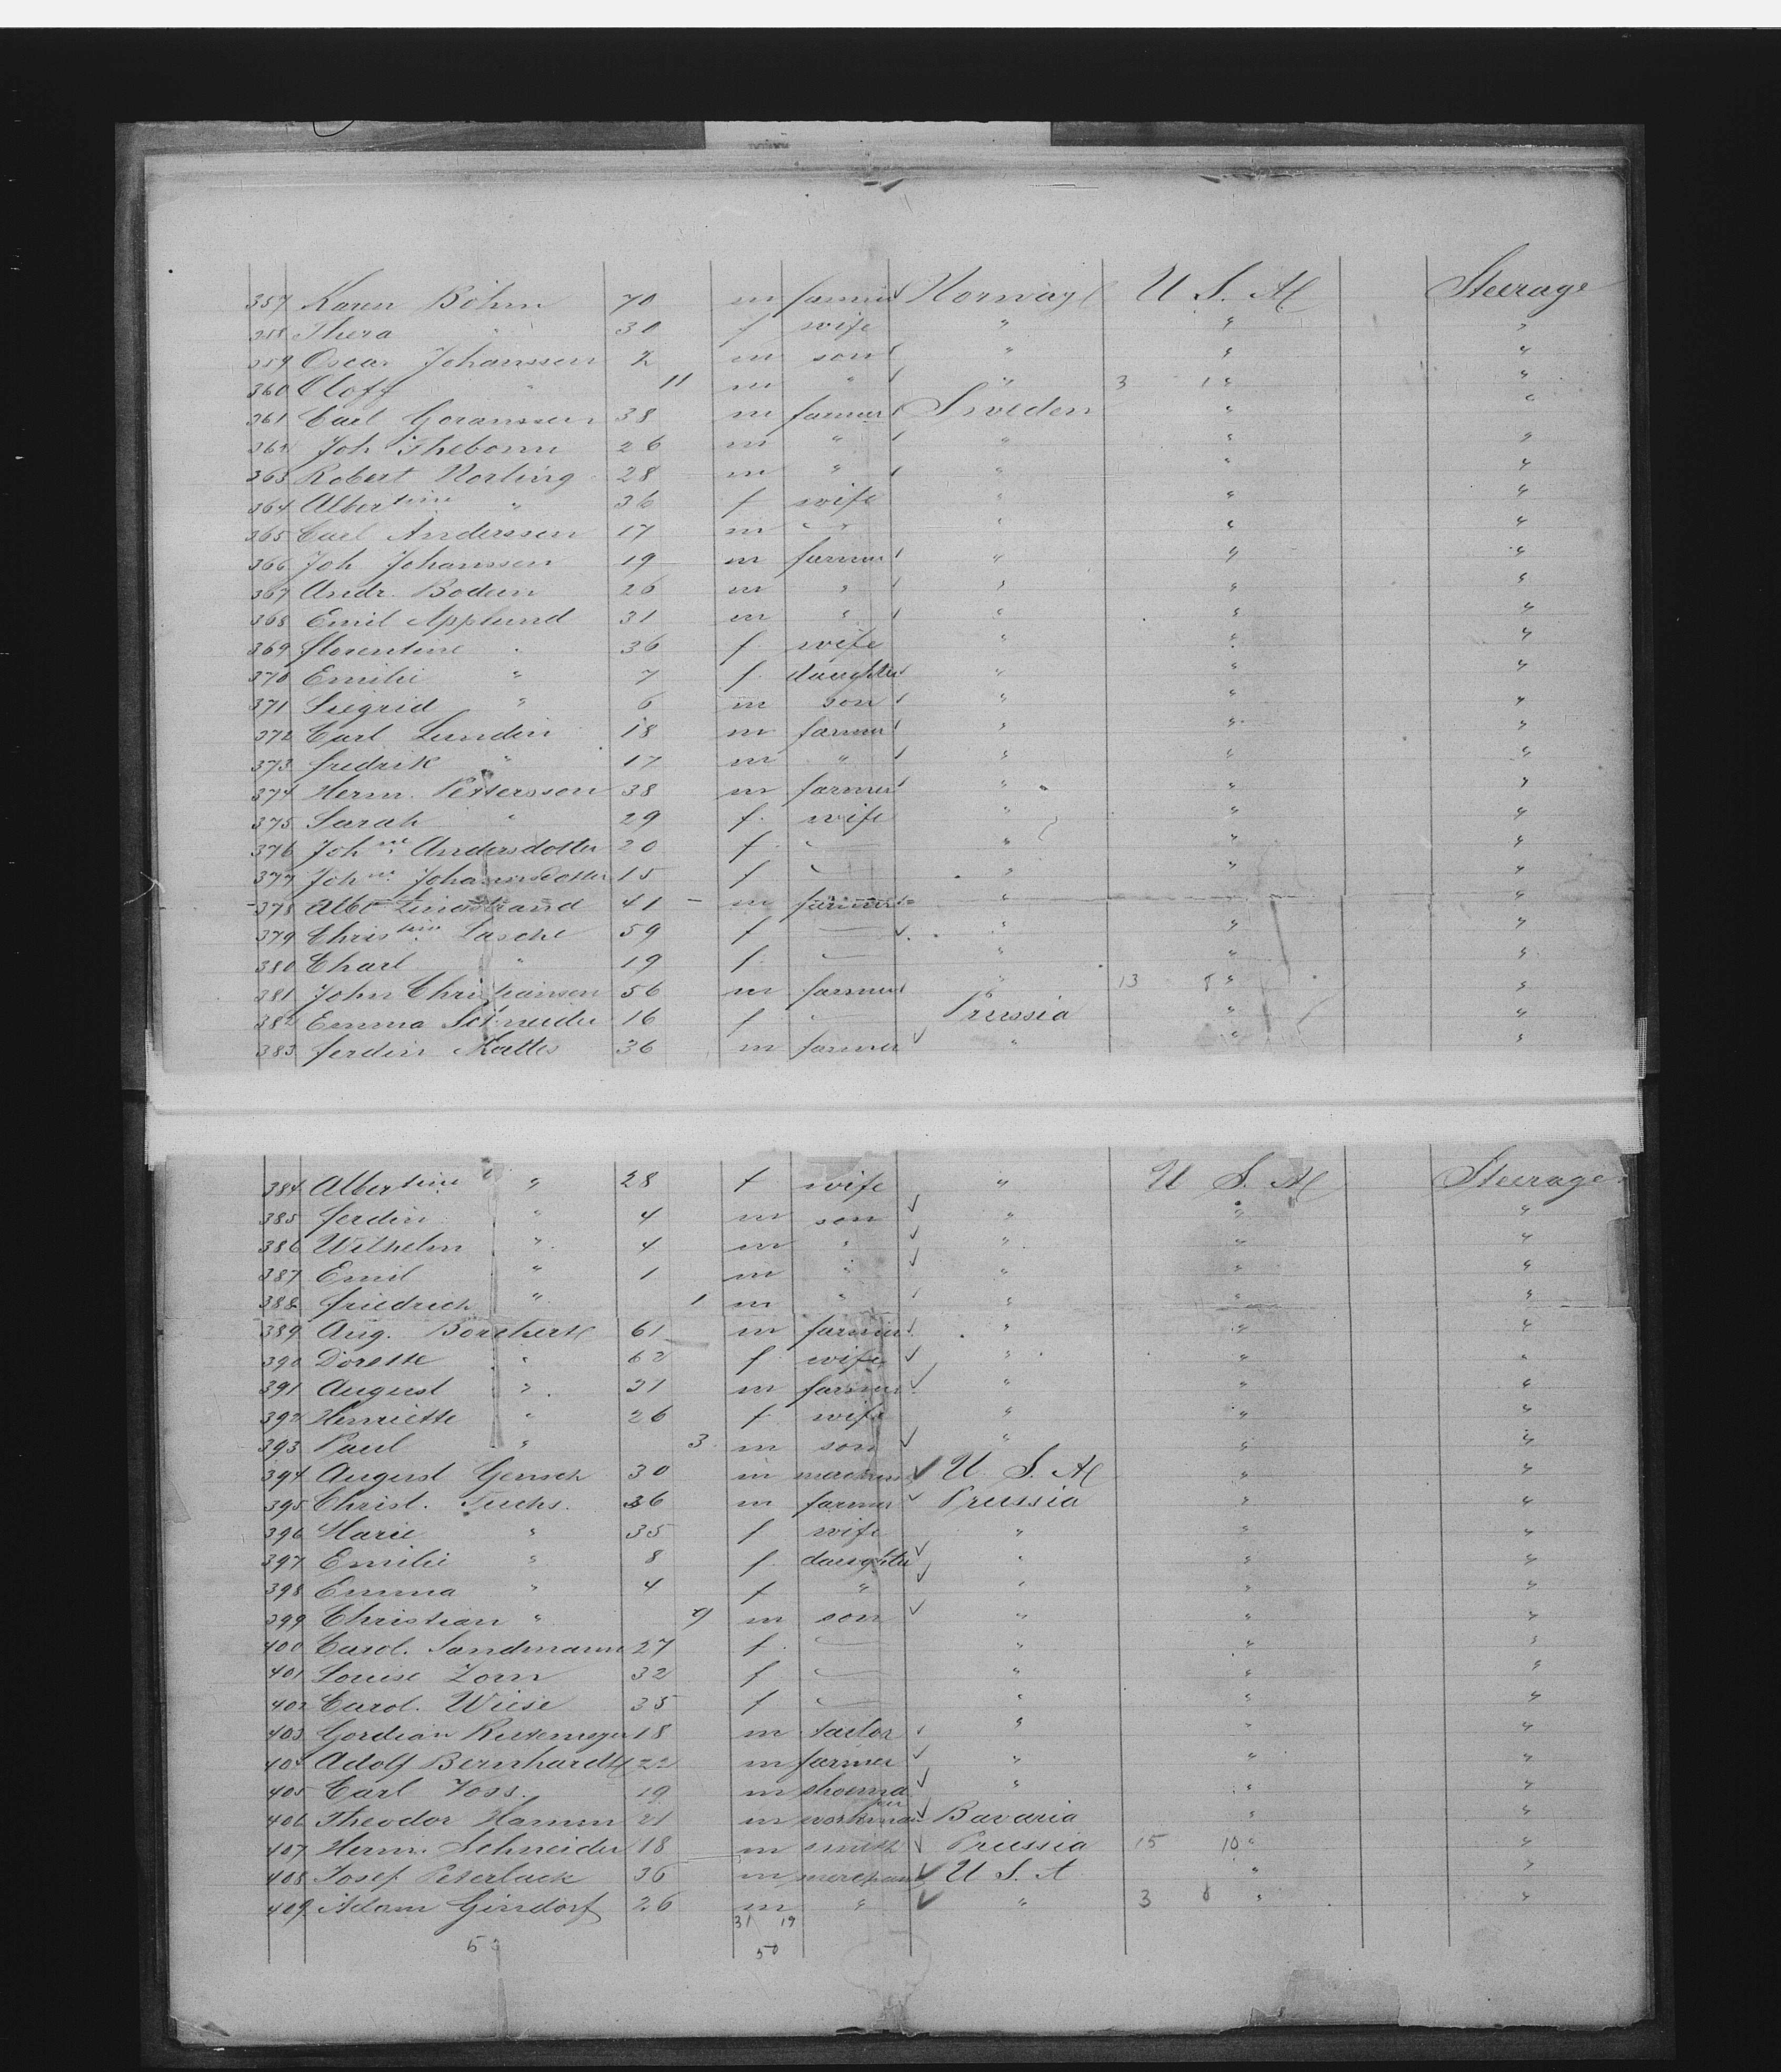 357 Karen Böhm 70 m farmer Norway U S. A Steerage
358 Thera " 30 f wife " " "
359 Oscar Johanssen 2 m son " " "
360 Oloff " 11 m " " 3 1 " "
361 Carl Goranssen 38 m farmer Sweden " "
362 Joh Thebom 26 m " " " "
363 Robert Norling 28 m " " " "
364 Albertine " 36 f wife " " "
365 Carl Anderssen 17 m — " " "
366 Joh Johanssen 19 m farmer " " "
367 Andr. Boden 26 m " " " "
368 Emil Applund 31 m " " " "
369 Florentine " 36 f. wife " " "
370 Emilie " 7 f. daughter " " "
371 Siegrid " 6 m son " " "
372 Carl Lundin 18 m farmer " " "
373 fredrik " 17 m " " " "
374 Herm. Petersson 38 m farmer " " "
375 Sarah " 29 f. wife " " "
376 Joh ne. Andersdotter 20 f. — " " "
377 Joh ne. Johannsdotter 15 f — " " "
378 Albt Lindstrand 41 m farmer " " "
379 Christine Lasche 59 f — " " "
380 Charl " 19 f. — " " "
381 John Christiansen 56 m farmer " 13 8 " "
382 Emma Schneider 16 f — Prussia " "
383 ferdin Kattes 36 m farmer " " "
384 Albertine " 28 f wife " U S. A Steerage
385 ferdin " 4 m son " " "
386 Wilhelm " 4 m " " " "
387 Emil " 1 m " " " "
388 friedrich " 1 m " " " "
389 Aug. Borchert 61 m farmer " " "
390 Dorette " 62 f. wife " " "
391 August " 31 m farmer " " "
392 Henriette " 26 f. wife " " "
393 Paul " 3 m son " " "
394 August Gensch 30 m U. S. A " "
395 Christ. Fuchs. 36 m farmer Prussia " "
396 Marie " 35 f wife " " "
397 Emilie " 8 f. daughter " " "
398 Emma " 4 f " " " "
399 Christian " 9 m son " " "
400 Carol. Sandmann 27 f. — " " "
401 Louise Zorn 32 f — " " "
402 Carol. Wiese 35 f — " " "
403 Gordian 18 m tailor " " "
404 Adolf Bernhardt 22 m farmer " " "
405 Carl Voss. 19 m shoema
ker " " "
406 Theodor Hamm 21 m workman Bavaria " "
407 Herm. Schneider 18 m smith Prussia 15 10 " "
408 Josef Peterlack 36 m merchant U S. A " "
409 Adam Gindorf 26 m " " 3 0 " "
31 19
50